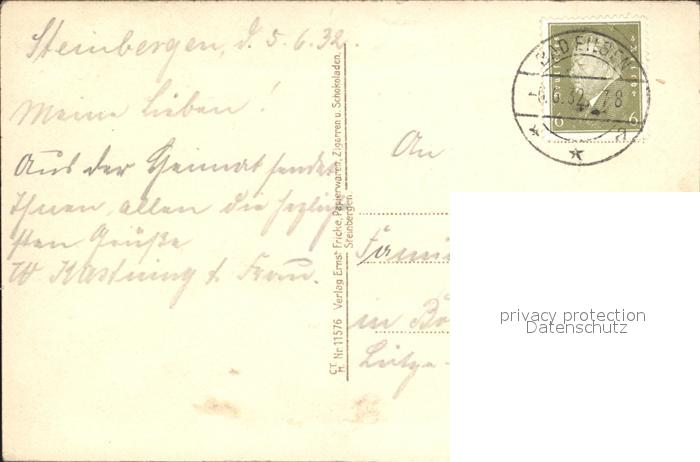 Steinbergen, d. 5.6.32.
Meine Lieben!
Aus der Heimat sendet
Ihnen allen die herzlich-
sten Grüße
W Kastning u. Frau.
CT. H. Nr. 11576 Verlag Ernst Fricke, Papierwaren, Zigarren u. Schokoladen,
Steinbergen.
BAD EILSEN
6.32 7-8
a
6 6
An
Fami
in Bo
privacy protection
Datenschutz